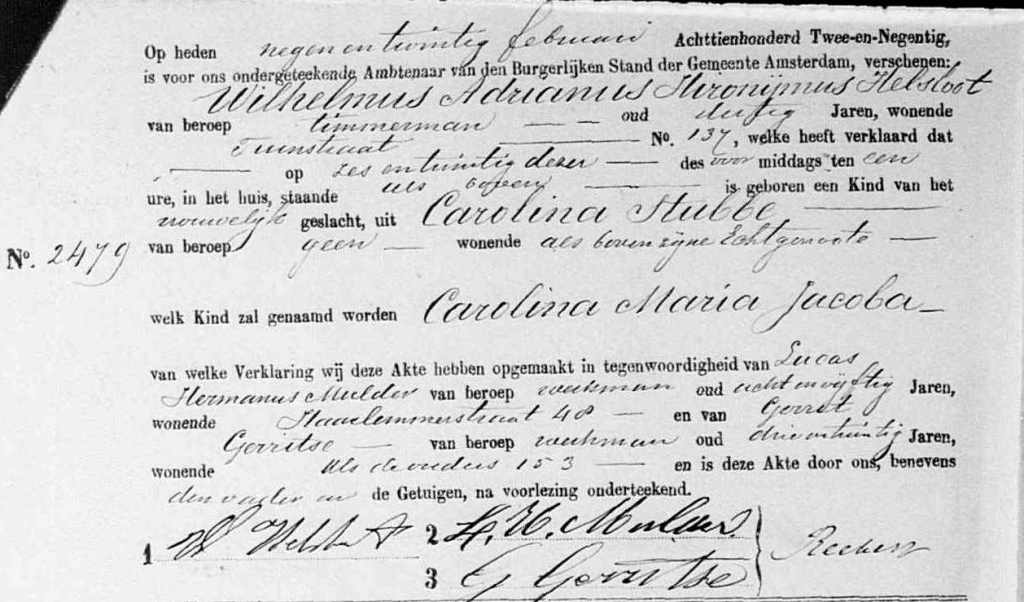 Op heden negen en twintig februari Achttienhonderd Twee-en-Negentig,
is voor ons ondergeteekende Ambtenaar van den Burgerlijken Stand der Gemeente Amsterdam, verschenen:
Wilhelmus Adrianus Hironijmus Helsloot
van beroep timmerman — — oud dertig Jaren, wonende
Tuinstraat — No. 137, welke heeft verklaard dat
, — op zes en twintig dezer — des voor middags ten een
ure, in het huis, staande als boven — is geboren een Kind van het
vrouwelijk geslacht, uit Carolina Stubbe, —
No. 2479
van beroep geen — wonende als boven zijne Echtgenoote —
welk Kind zal genaamd worden Carolina Maria Jacoba —
van welke Verklaring wij deze Akte hebben opgemaakt in tegenwoordigheid van Lucas
Hermanus Mulder van beroep werkman oud acht en vijftig Jaren,
wonende Haarlemmerstraat 48 — en van Gerrit
Gerritse — van beroep werkman oud drie en twintig Jaren,
wonende als de vader 153 — en is deze Akte door ons, benevens
den vader en de Getuigen, na voorlezing onderteekend.
1 W Helsloot 2 L. H. Mulder
3 G Gerritse